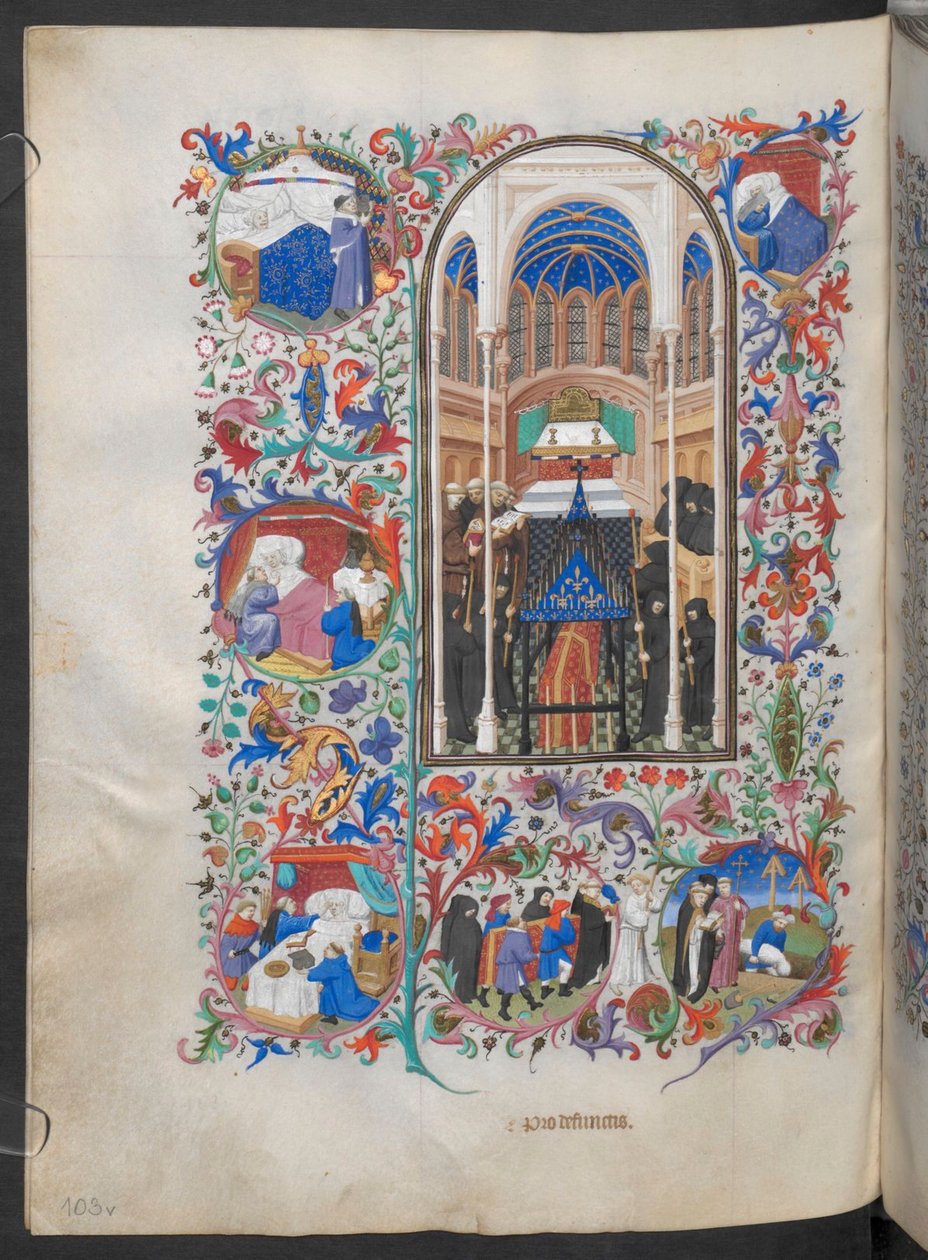 pro defunctis.
103v